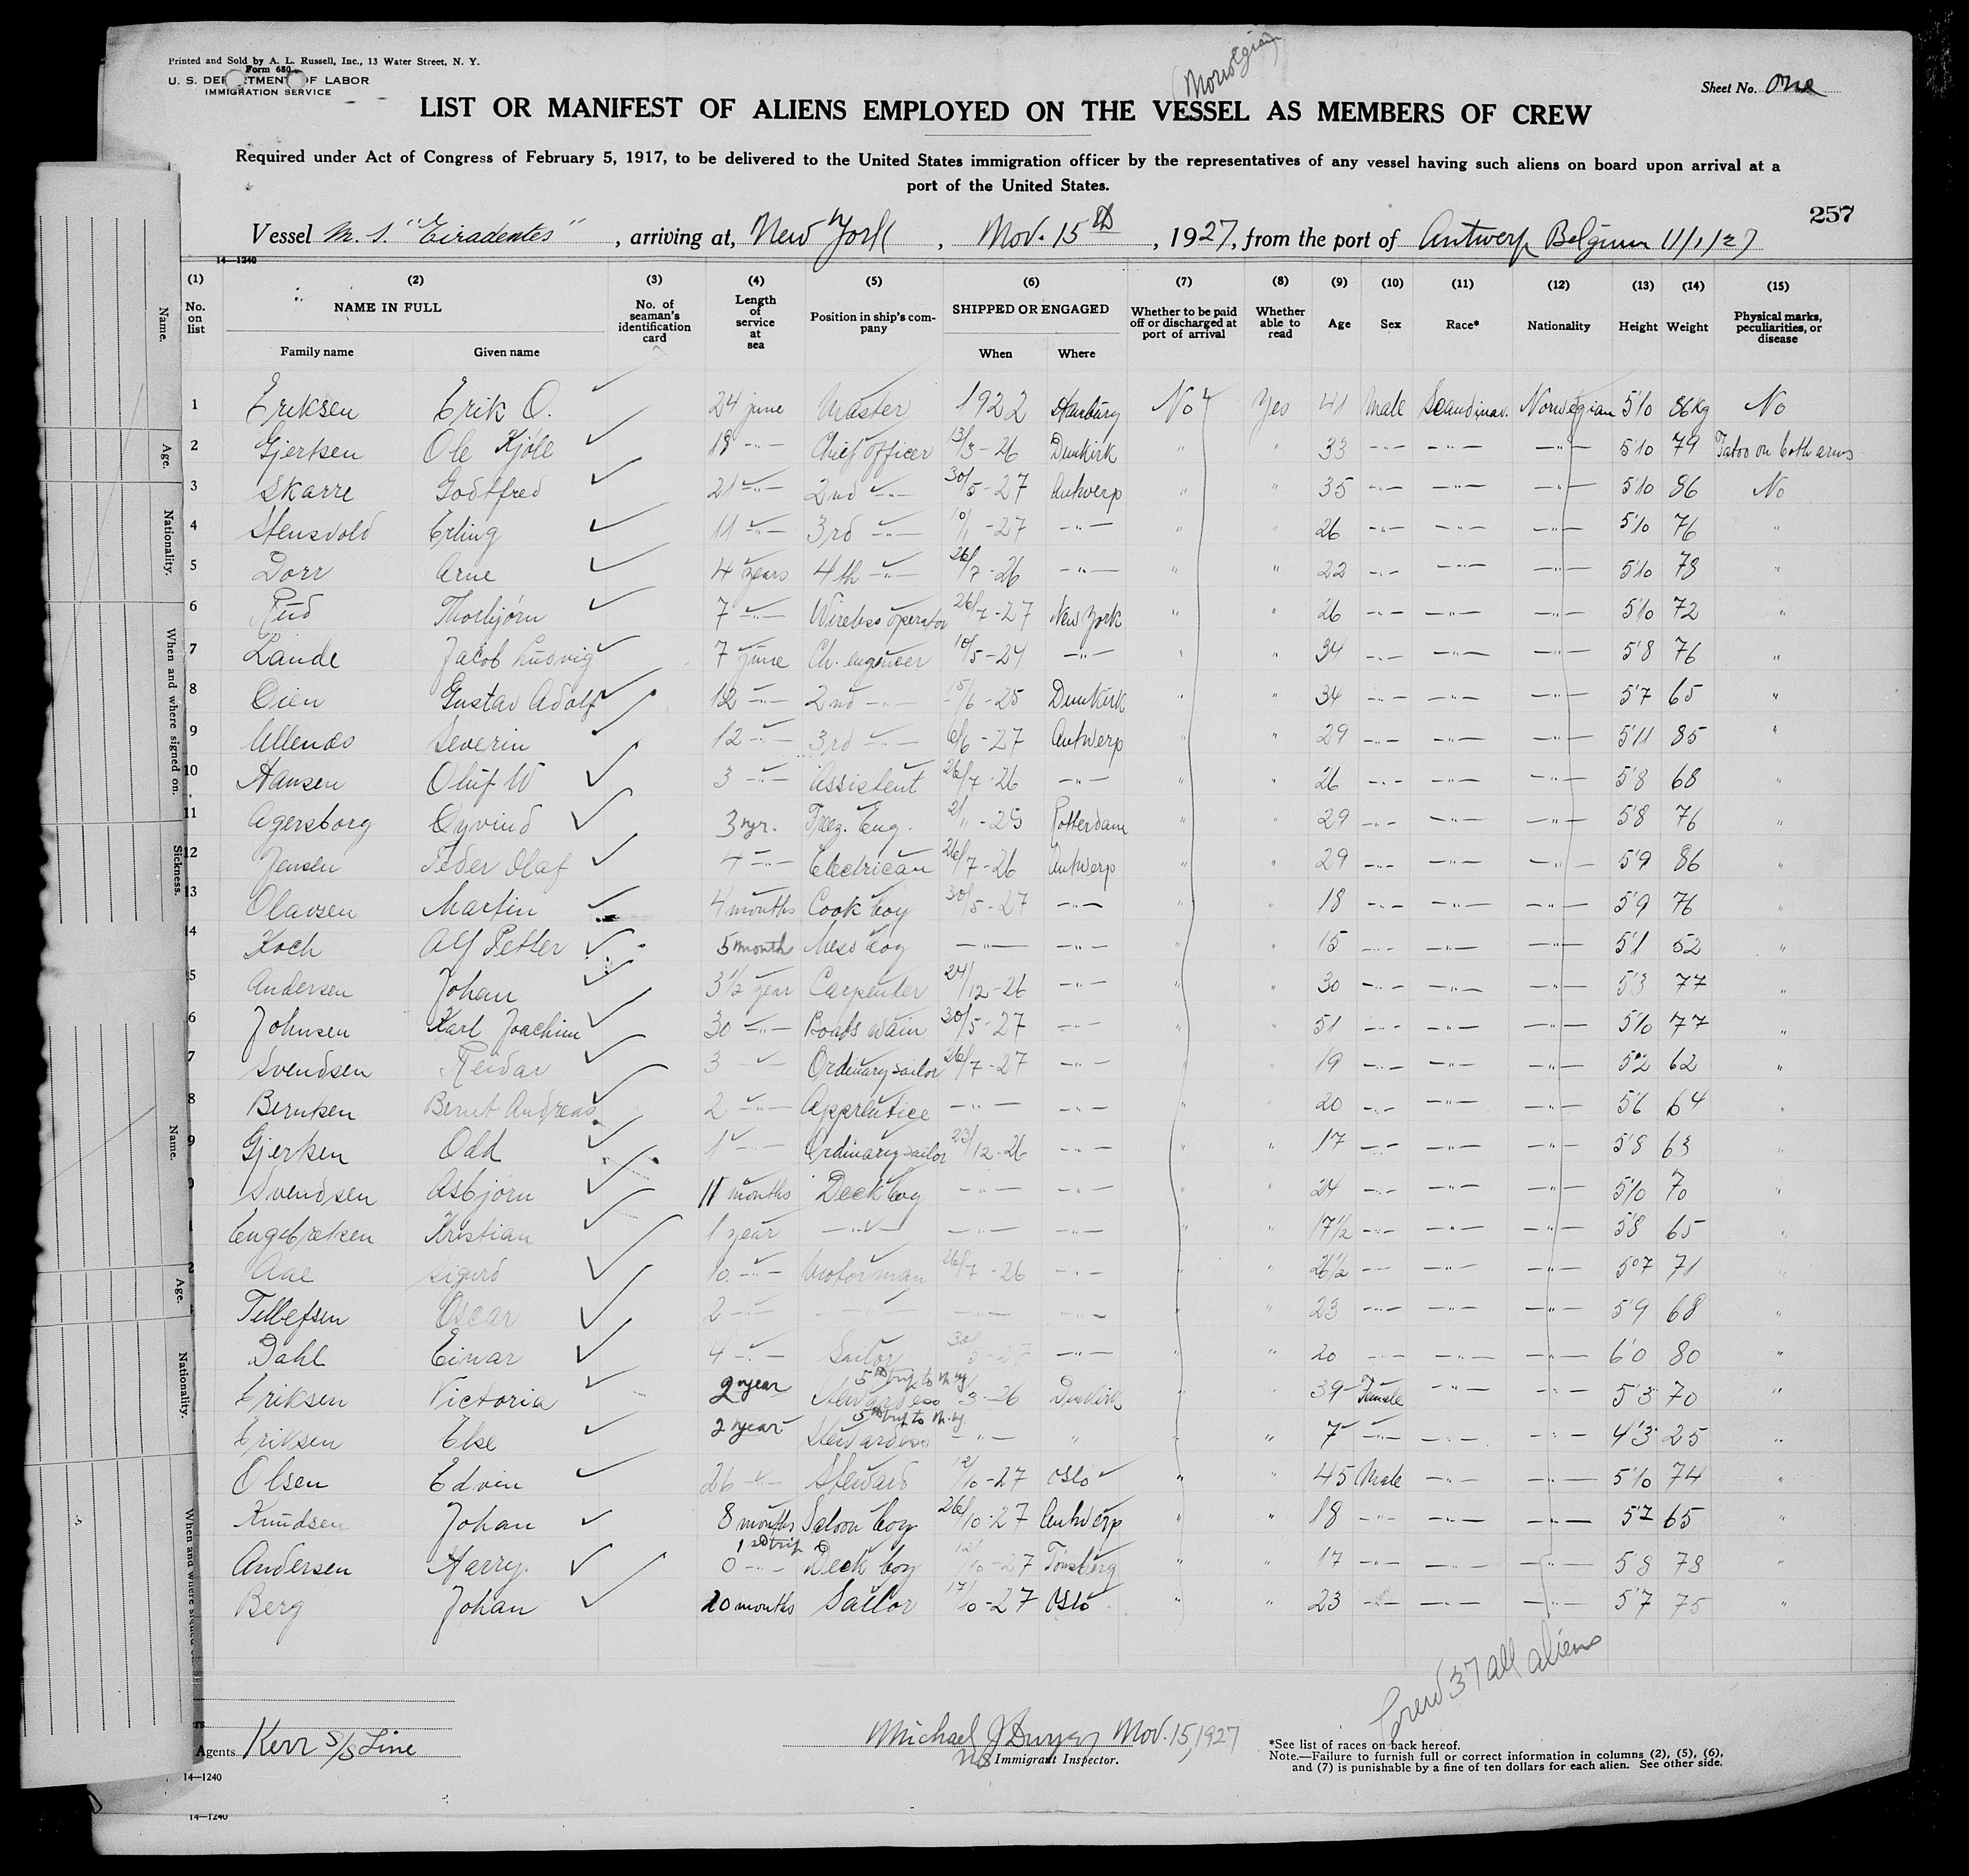 Printed and Sold by A. L. Russell, Inc., 13 Water Street, N. Y.
Form 680
U. S. DEPARTMENT OF LABOR
IMMIGRATION SERVICE
(Norwegian)
Sheet No. One
LIST OR MANIFEST OF ALIENS EMPLOYED ON THE VESSEL AS MEMBERS OF CREW
Required under Act of Congress of February 5, 1917, to be delivered to the United States immigration officer by the representatives of any vessel having such aliens on board upon arrival at a
port of the United States.
257
Vessel M. S. , arriving at, New York, Nov. 15th, 1927, from the port of Antwerp Belgium 11/1/27
14—1240
(1) (2) (3) (4) (5) (6) (7) (8) (9) (10) (11) (12) (13) (14) (15)
No. on list NAME IN FULL No. of seaman's identification card Length of service at sea Position in ship's company SHIPPED OR ENGAGED Whether to be paid off or discharged at port of arrival Whether able to read Age Sex Race* Nationality Height Weight Physical marks, peculiarities, or disease
Family name Given name When Where
1 Eriksen Erik O. 24 Master 1922 Hamburg No Yes 41 Male Scandinav. Norwegian 5'10 86kg No
2 Gjertsen Ole Kjöle 18 -"- Chief officer 13/3-26 Dunkirk " " 33 -"- -"- -"- 5'10 79 Tatoo on both arms
3 Skarre Godtfred 21 -"- 2nd -"- 30/5-27 Antwerp " " 35 -"- -"- -"- 5'10 86 No
4 Stensvold Erling 11 -"- 3rd -"- 10/1-27 -"- " " 26 -"- -"- -"- 5'10 76 "
5 Dorr Arne 4 years 4th -"- 26/7-26 -"- " " 22 -"- -"- -"- 5'10 78 "
6 Rud Thorbjörn 7 -"- Wireless operator 26/7-27 New York " " 26 -"- -"- -"- 5'10 72 "
7 Lande Jacob Ludvig 7 Ch. engineer 10/5-24 -"- " " 34 -"- -"- -"- 5'8 76 "
8 Oien Gustav Adolf 12 -"- 2nd -"- 15/6-25 Dunkirk " " 34 -"- -"- -"- 5'7 65 "
9 Ullenæs Severin 12 -"- 3rd -"- 6/6-27 Antwerp " " 29 -"- -"- -"- 5'11 85 "
10 Hansen Oluf W 3 -"- Assistent 26/7-26 -"- " " 26 -"- -"- -"- 5'8 68 "
11 Agersborg Oyvind 3 yr. Freez. Eng. Rotterdam " " 29 -"- -"- -"- 5'8 76 "
12 Jensen Peder Olaf 4 -"- Electrican 26/7-26 Antwerp " " 29 -"- -"- -"- 5'9 86 "
13 Olavsen Martin 4 months Cook boy 30/5-27 -"- " " 18 -"- -"- -"- 5'9 76 "
14 Koch Alf Petter 5 month Mess boy -"- -"- " " 15 -"- -"- -"- 5'1 52 "
5 Andersen Johan 3 1/2 year Carpenter 24/12-26 -"- " " 30 -"- -"- -"- 5'3 77 "
6 Johnsen Karl Joachim 30 -"- Boadswain 30/5-27 -"- " " 51 -"- -"- -"- 5'10 77 "
7 Svendsen Reidar 3 -"- Ordinary sailor 26/7-27 -"- " " 19 -"- -"- -"- 5'2 62 "
8 Berntsen Bernt Andreas 2 -"- Apprentice -"- -"- " " 20 -"- -"- -"- 5'6 64 "
9 Gjertsen Odd 1 -"- Ordinary sailor 23/12-26 -"- " " 17 -"- -"- -"- 5'8 63 "
Svendsen Asbjorn 11 months Deck boy -"- -"- " " 24 -"- -"- -"- 5'10 70 "
1 Engebretsen Kristian 1 year -"- -"- -"- " " 17 1/2 -"- -"- -"- 5'8 65 "
2 Aae Sigurd 10 -"- Motorman 26/7-26 -"- " " 26 1/2 -"- -"- -"- 5'7 71 "
Tellefsen Oscar 2 -"- -"- -"- -"- " " 23 -"- -"- -"- 5'9 68 "
Dahl Einar 4 -"- Sailor 30/5-27 -"- " " 20 -"- -"- -"- 6'0 80 "
5th trip to N.Y.
Eriksen Victoria 2 year Stewardess 3-26 Dunkirk " " 39 Female -"- -"- 5'3 70 "
5th trip to N.Y.
Eriksen Else 2 year Stewardess -"- " " " 7 -"- -"- -"- 4'3 25 "
Olsen Edvin 26 -"- Steward 12/10-27 Oslo " " 45 Male -"- -"- 5'10 74 "
Knudsen Johan 8 months Saloon boy 26/10-27 Antwerp " " 18 -"- -"- -"- 5'7 65 "
1st trip
Andersen Harry. 0 -"- Deck boy 12/10-27 Tönsberg " " 17 -"- -"- -"- 5'8 78 "
Berg Johan 20 months Sailor 17/10-27 Oslo " " 23 -"- -"- -"- 5'7 75 "
Crew 37 all aliens
Agents Kerr S/S Line
Michael J Dwyer Nov. 15, 1927
Immigrant Inspector.
*See list of races on back hereof.
Note.—Failure to furnish full or correct information in columns (2), (5), (6),
and (7) is punishable by a fine of ten dollars for each alien. See other side.
14—1240
14—1240
Name.
Age.
Nationality.
When and where signed on.
Sickness.
Name.
Age.
Nationality.
When and where signed on.